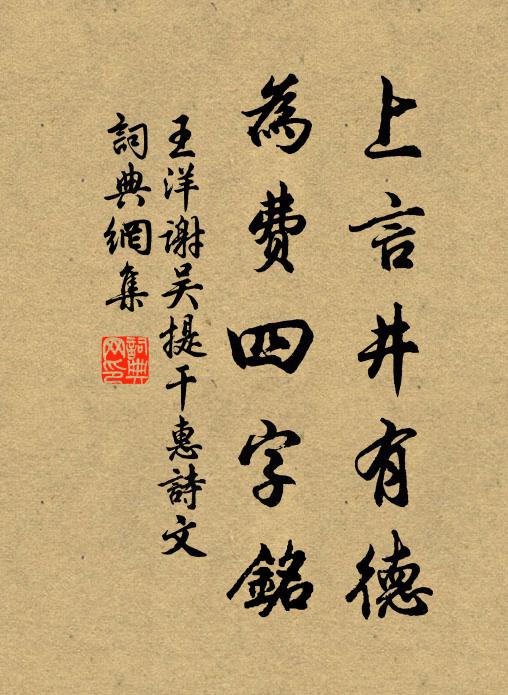 上言井有德
為費四字銘
王洋謝吳提干惠詩文
詞典網集
詞典網印